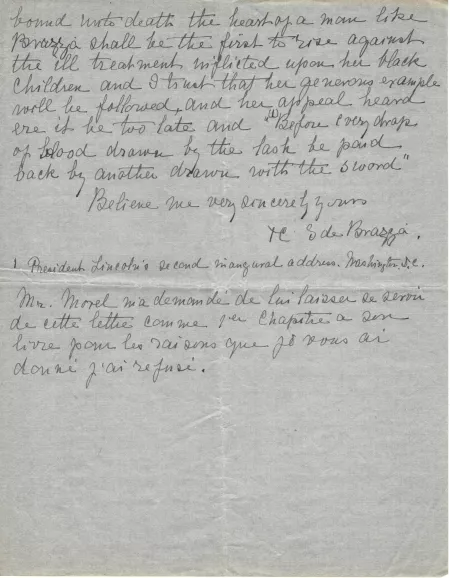 bound unto death the heart of a man like
Brazzà shall be the first to rise against
the ill treatment inflicted upon her black
Children and I trust that her generous example
will be followed, and her appeal heard
ere it be too late and "(1)Before every drop
of blood drawn by the lash be paid
back by another drawn with the sword"
Believe me very sincerely yours
de Brazzà.
1 President Lincoln's second inaugural address. Washington D.C.
Mr. Morel m'a demandé de lui laisser se servir
de cette lettre comme 1er Chapitre a son
livre pour les raisons que je vous ai
donné j'ai refusé.